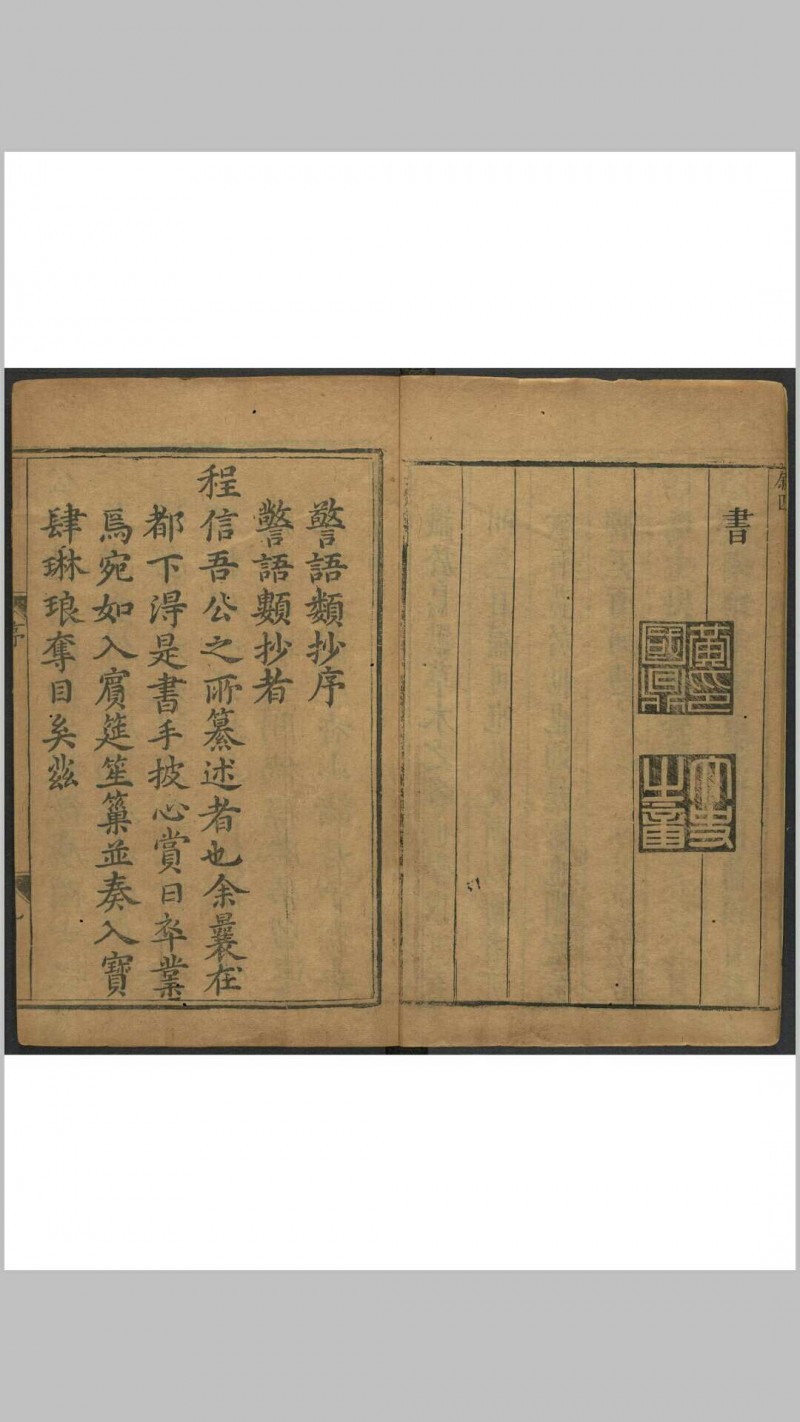 書
黃印國鼎
太史之章
警語類抄序
警語類抄者
程信吾公之所纂述者也余曩在
都下淂是書手披心賞日卒業
焉宛如入賓筵笙簧並奏入寶
肆琳琅奪目矣茲
序